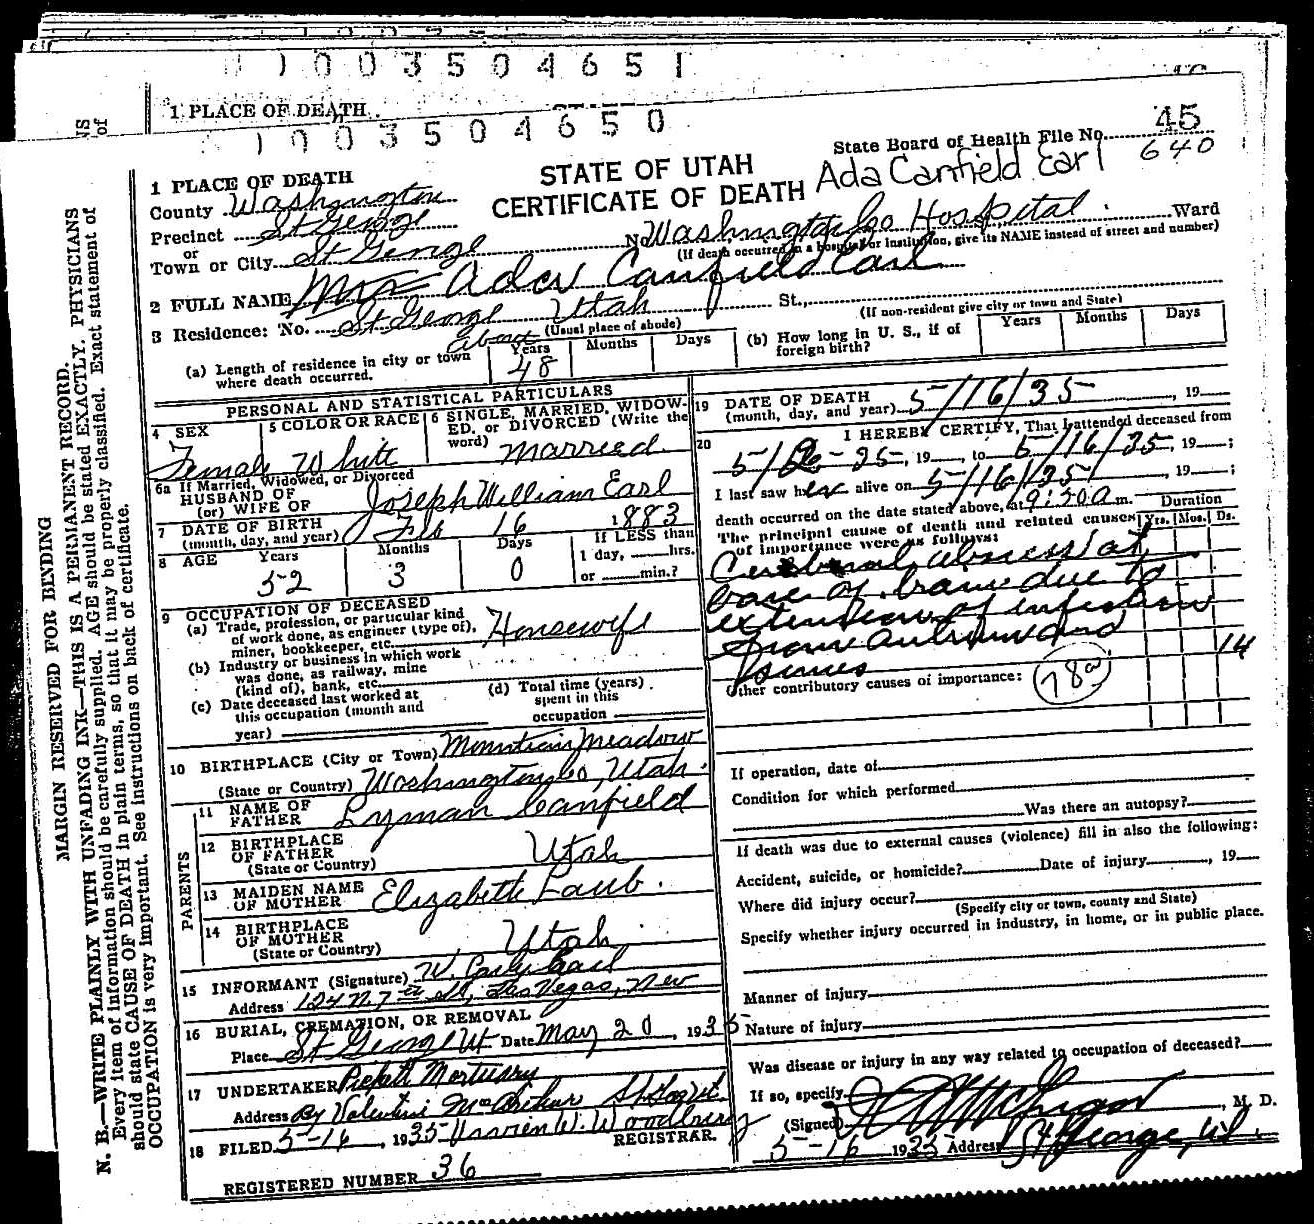 1 0 0 3 5 0 4 6 5 1
1 PLACE OF DEATH
1 0 0 3 5 0 4 6 5 0
State Board of Health File No. 45
640
STATE OF UTAH
CERTIFICATE OF DEATH
Ada Canfield Earl
1 PLACE OF DEATH
County Washington
Precinct St George
or
Town or City St George No. Washington Co Hospital. Ward
(If death occurred in a hospital or institution, give its NAME instead of street and number)
2 FULL NAME Mrs Ada Canfield Earl
3 Residence: No. St George Utah St.,
(Usual place of abode)
(If non-resident give city or town and State)
(a) Length of residence in city or town where death occurred. About 48 Years Months Days
(b) How long in U. S., if of foreign birth? Years Months Days
PERSONAL AND STATISTICAL PARTICULARS
4 SEX Female
5 COLOR OR RACE White
6 SINGLE, MARRIED, WIDOWED, or DIVORCED (Write the word) Married.
6a If Married, Widowed, or Divorced
HUSBAND OF
(or) WIFE OF Joseph William Earl
7 DATE OF BIRTH
(month, day, and year) Feb 16 1883
8 AGE Years 52 Months 3 Days 0 If LESS than 1 day, hrs. or min.?
9 OCCUPATION OF DECEASED
(a) Trade, profession, or particular kind of work done, as engineer (type of), miner, bookkeeper, etc. Housewife
(b) Industry or business in which work was done, as railway, mine (kind of), bank, etc.
(c) Date deceased last worked at this occupation (month and year)
(d) Total time (years) spent in this occupation
10 BIRTHPLACE (City or Town) Mountain Meadow
(State or Country) Washington Co, Utah.
PARENTS
11 NAME OF FATHER Lyman Canfield
12 BIRTHPLACE OF FATHER (State or Country) Utah
13 MAIDEN NAME OF MOTHER Elizabeth Laub.
14 BIRTHPLACE OF MOTHER (State or Country) Utah.
15 INFORMANT (Signature) W. Earl
Address 124 N. 7th St, Las Vegas, Nev
16 BURIAL, CREMATION, OR REMOVAL
Place St George Ut Date May 20, 1935
17 UNDERTAKER Pickett Mortuary
Address By Valentine McArthur St. Geo Ut.
18 FILED 5-16, 1935 W. Woodbury
REGISTRAR.
REGISTERED NUMBER 36
19 DATE OF DEATH
(month, day, and year) 5/16/35, 19
20 I HEREBY CERTIFY, That I attended deceased from
35, 19, to 5/16/35, 19;
I last saw her alive on 5/16/35, 19;
death occurred on the date stated above, at 9:30 a m.
Duration
Yrs. Mos. Ds.
The principal cause of death and related causes of importance were as follows:
Cerebral abscess at
base of brain due to
extension of infection
from antrum and
sinus
14
Other contributory causes of importance: 78a
If operation, date of
Condition for which performed
Was there an autopsy?
If death was due to external causes (violence) fill in also the following:
Accident, suicide, or homicide? Date of injury, 19
Where did injury occur?
(Specify city or town, county and State)
Specify whether injury occurred in industry, in home, or in public place.
Manner of injury
Nature of injury
Was disease or injury in any way related to occupation of deceased?
If so, specify
(Signed) McGregor, M. D.
5-16 1935 Address St George, Ut.
MARGIN RESERVED FOR BINDING
N. B.—WRITE PLAINLY WITH UNFADING INK—THIS IS A PERMANENT RECORD.
Every item of information should be carefully supplied. AGE should be stated EXACTLY. PHYSICIANS
should state CAUSE OF DEATH in plain terms, so that it may be properly classified. Exact statement of
OCCUPATION is very important. See instructions on back of certificate.